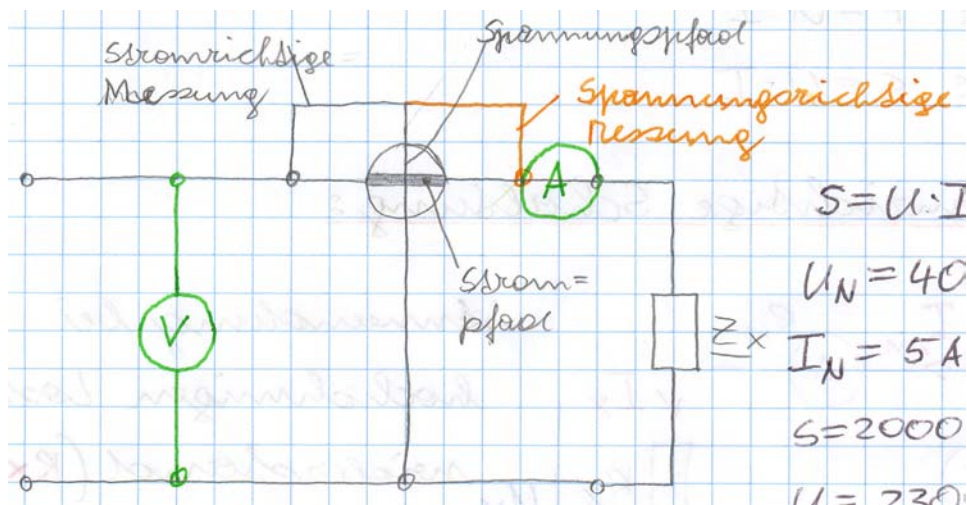 Stromrichtige
Messung
Spannungspfad
Spannungsrichtige
Messung
A
V
Strom=
pfad
Zx
S=U·I
U_N = 40
I_N = 5A
S=2000
U = 230